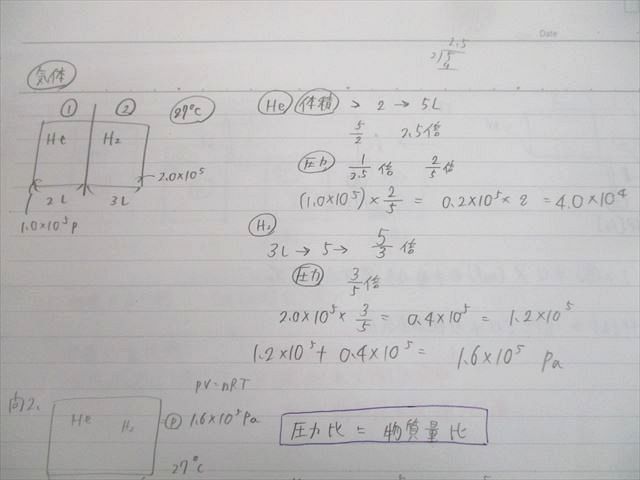 Date
2.5
2)5
4
気体
① ② 27℃
He H₂
2.0×10⁵
2L 3L
1.0×10⁵P
He 体積 > 2 → 5L
5/2 2.5倍
圧力 1/2.5倍 2/5倍
(1.0×10⁵)×2/5 = 0.2×10⁵×2 = 4.0×10⁴
H₂
3L → 5 → 5/3倍
圧力 3/5倍
2.0×10⁵×3/5 = 0.4×10⁵ = 1.2×10⁵
1.2×10⁵+0.4×10⁵= 1.6×10⁵ Pa
PV=nRT
問2.
He H₂ P 1.6×10⁵Pa
27℃
圧力比 = 物質量比